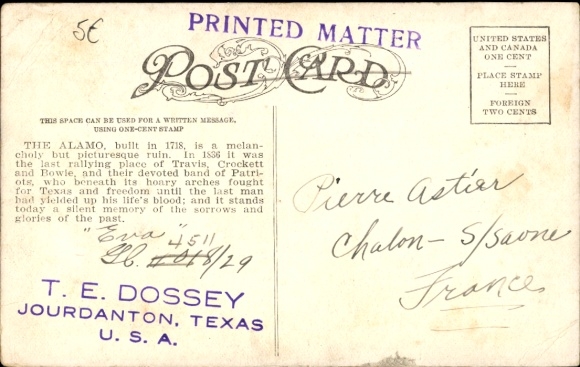 5€
PRINTED MATTER
POST CARD
UNITED STATES
AND CANADA
ONE CENT
PLACE STAMP
HERE
FOREIGN
TWO CENTS
THIS SPACE CAN BE USED FOR A WRITTEN MESSAGE,
USING ONE-CENT STAMP
THE ALAMO, built in 1718, is a melan-
choly but picturesque ruin. In 1836 it was
the last rallying place of Travis, Crockett
and Bowie, and their devoted band of Patri-
ots, who beneath its hoary arches fought
for Texas and freedom until the last man
had yielded up his life's blood; and it stands
today a silent memory of the sorrows and
glories of the past.
"Eva"
4511
/29
T. E. DOSSEY
JOURDANTON, TEXAS
U. S. A.
Pierre Astier
Chalon - S/Saone
France